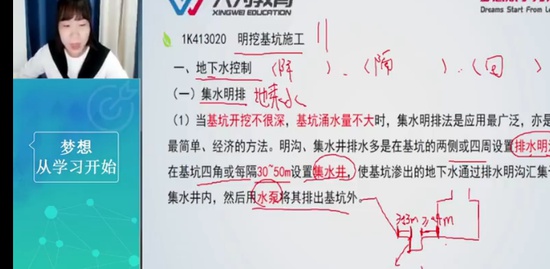 兴为教育
XINGWEI EDUCATION
Dreams Start From Le
1K413020 明挖基坑施工
一、地下水控制 (降 )、(隔 )、(回 )
(一)集水明排 地表水
(1)当基坑开挖不很深,基坑涌水量不大时,集水明排法是应用最广泛,亦是
最简单、经济的方法。明沟、集水井排水多是在基坑的两侧或四周设置排水明沟
在基坑四角或每隔30~50m设置集水井,使基坑渗出的地下水通过排水明沟汇集
集水井内,然后用水泵将其排出基坑外。
梦想
从学习开始